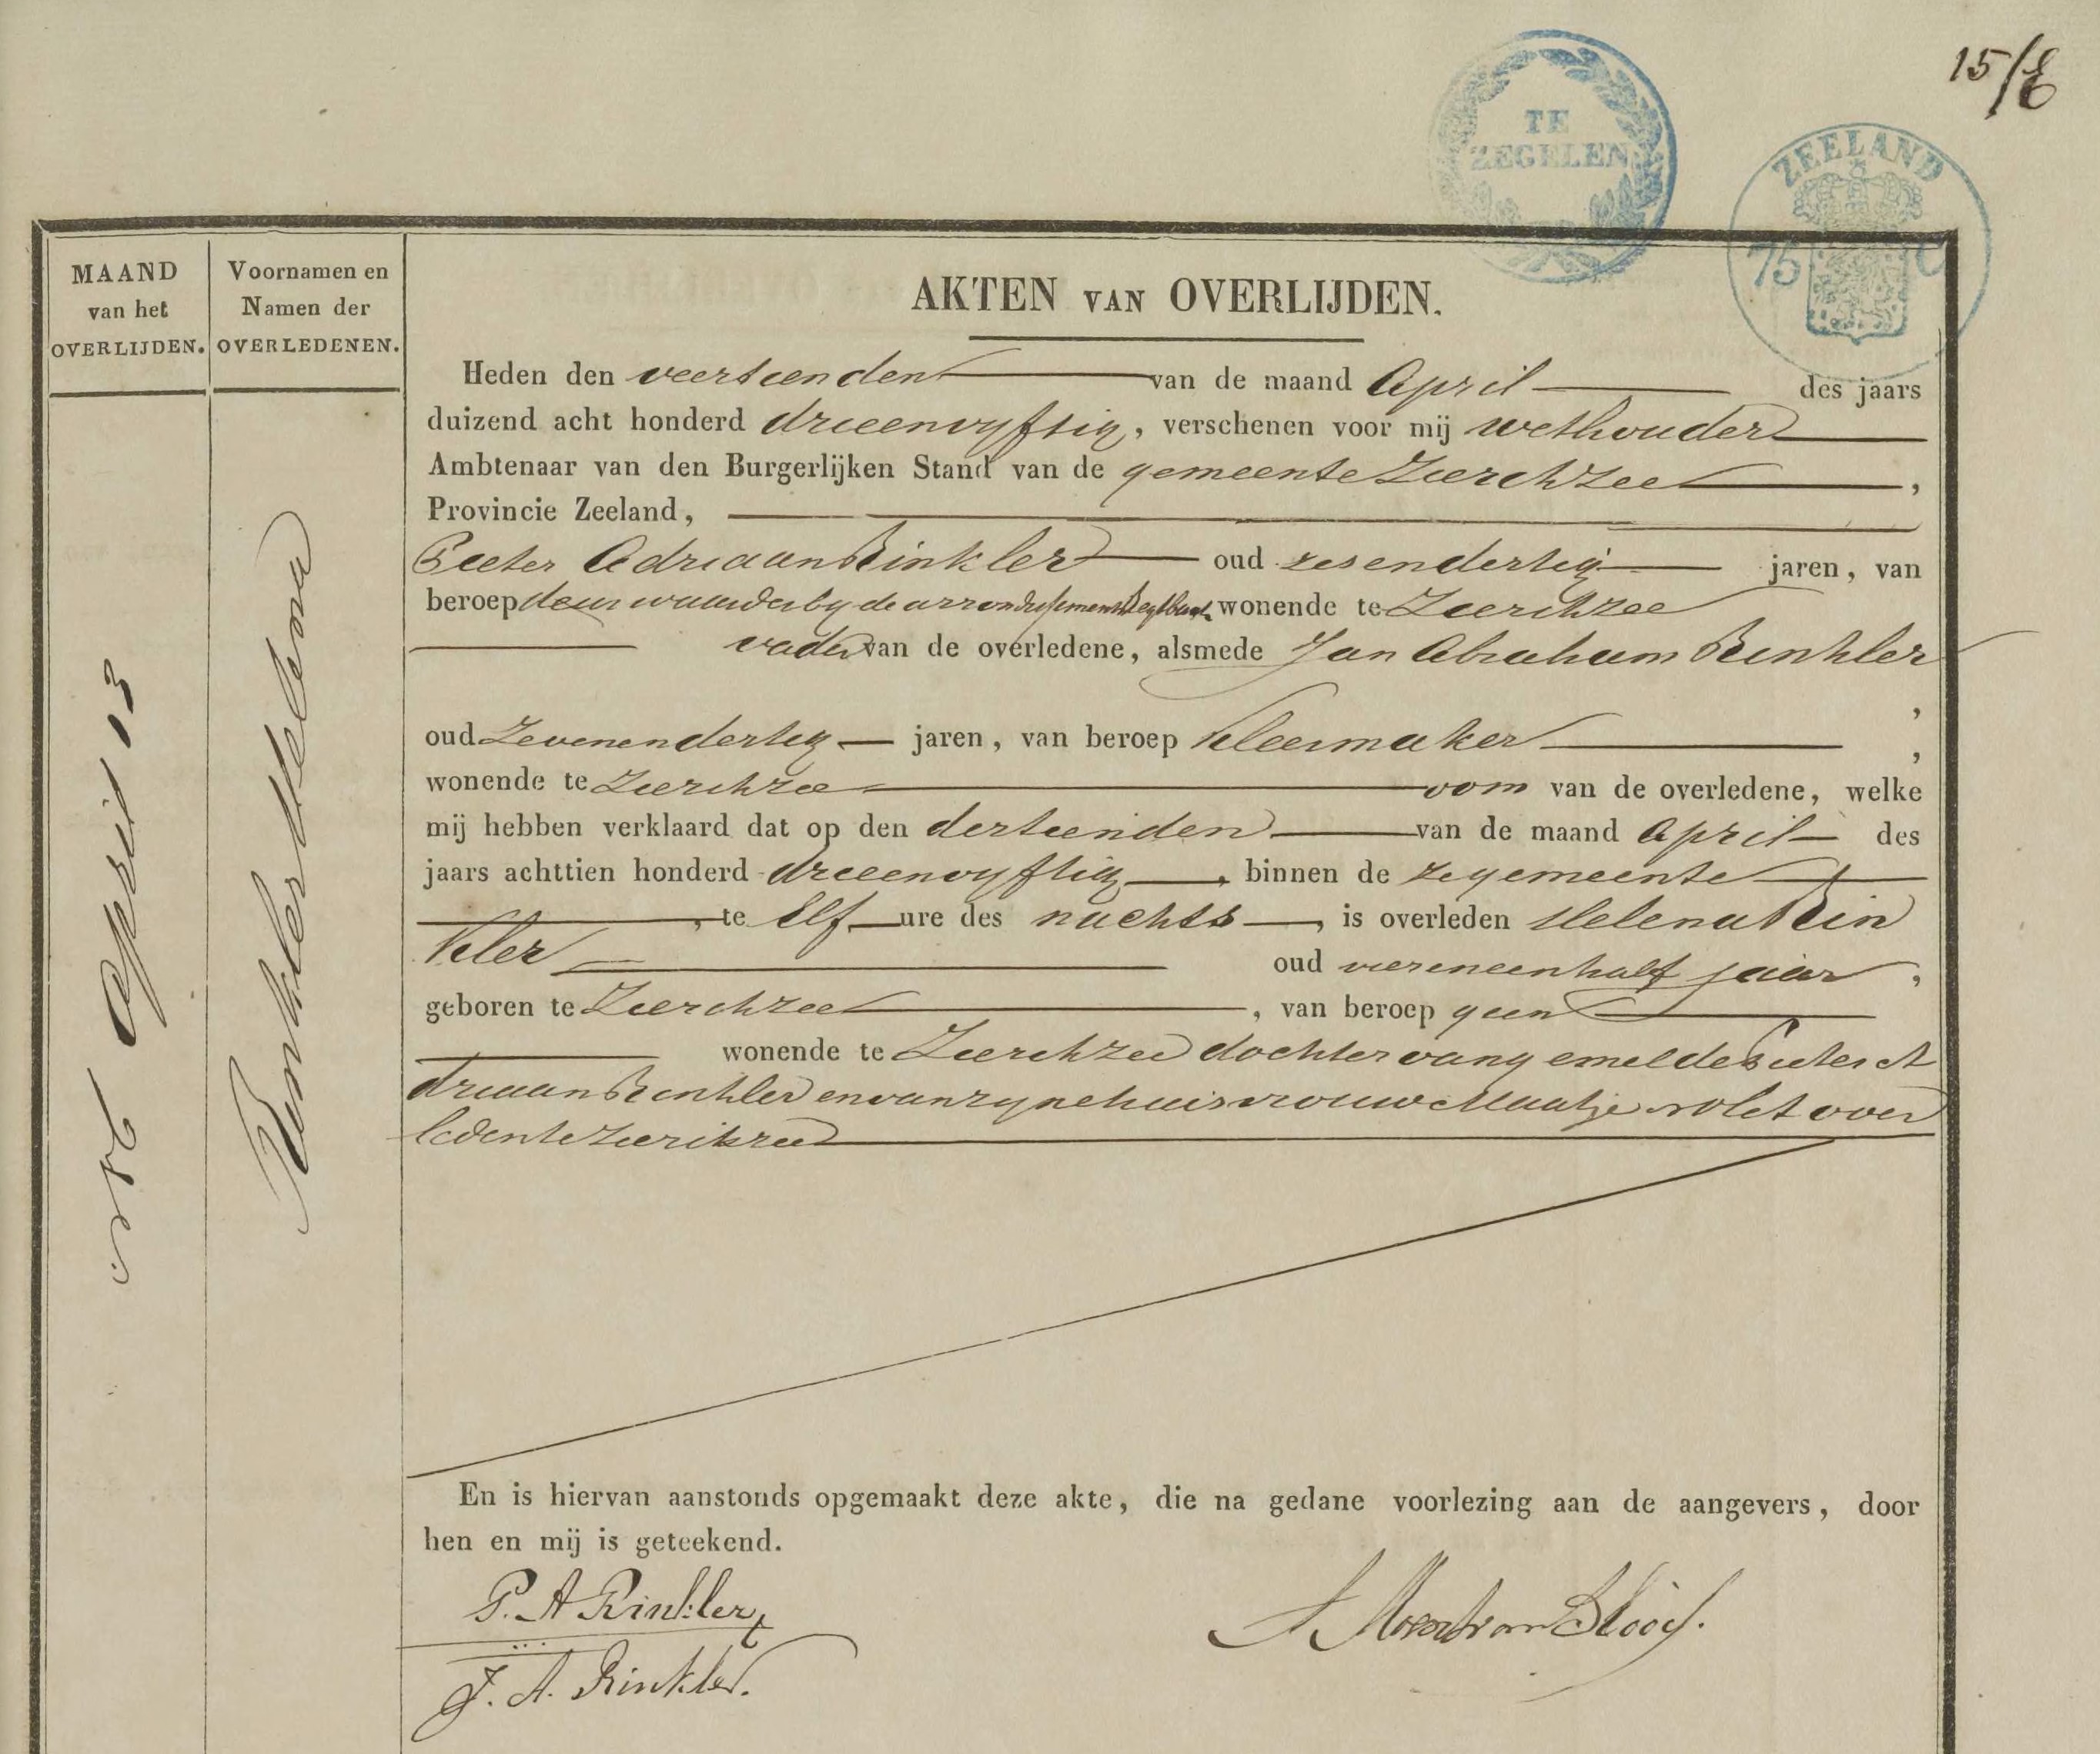 15/E
TE
ZEGELEN
ZEELAND
75 C
MAAND
van het
OVERLIJDEN.
Voornamen en
Namen der
OVERLEDENEN.
April 13
Rinkler Helena
AKTEN VAN OVERLIJDEN.
Heden den veertienden van de maand April des jaars
duizend acht honderd drieenvyftig, verschenen voor mij wethouder
Ambtenaar van den Burgerlijken Stand van de gemeente Zierikzee,
Provincie Zeeland,
Pieter Adriaan Rinkler oud zesendertig jaren, van
beroep deurwaarder by de arrondissements Regtbank wonende te Zierikzee
vader van de overledene, alsmede Jan Abraham Rinkler
,
oud Zevenendertig jaren, van beroep kleermaker ,
wonende te Zierikzee oom van de overledene, welke
mij hebben verklaard dat op den dertienden van de maand April des
jaars achttien honderd drieenvyftig, binnen de ze gemeente
, te Elf ure des nachts, is overleden Helena Rin
kler oud viereneenhalf jaar,
geboren te Zierikzee, van beroep geen
wonende te Zierikzee dochter van gemelde Pieter A
driaan Rinkler en van zyne huisvrouw Maatje Nolet over
leden te Zierikzee
En is hiervan aanstonds opgemaakt deze akte, die na gedane voorlezing aan de aangevers, door
hen en mij is geteekend.
P. A Rinkler
J. A. Rinkler.